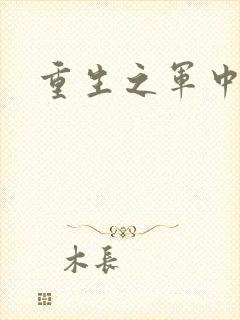 重生之军中
木長